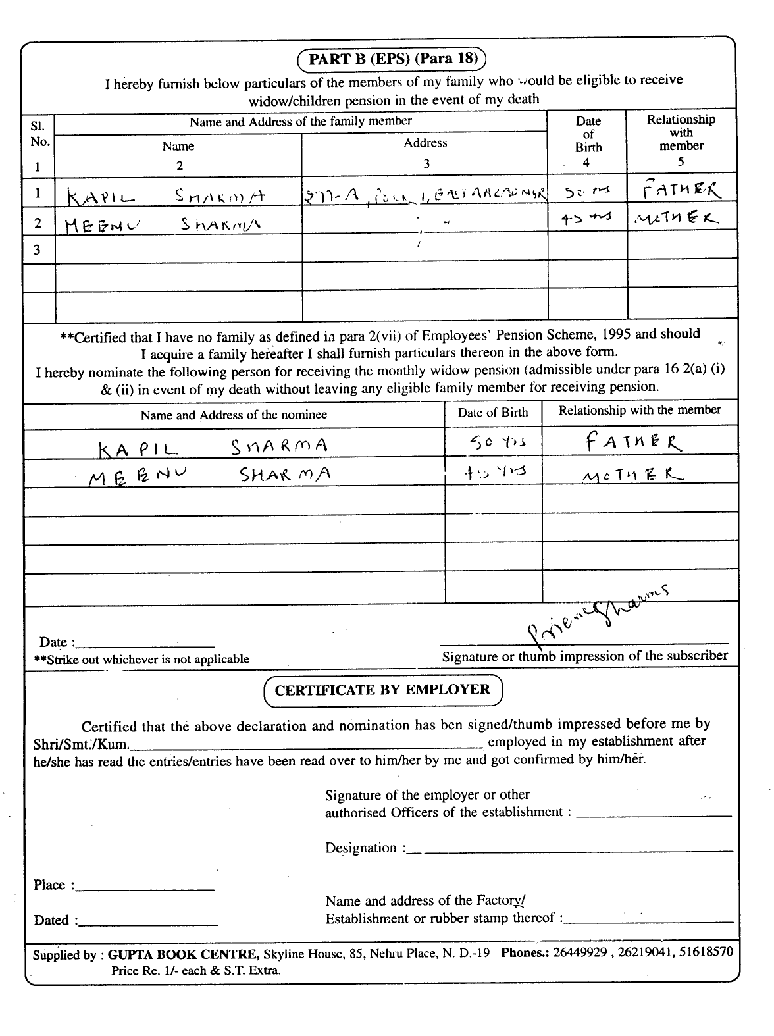 PART B (EPS) (Para 18)
I hereby furnish below particulars of the members of my family who would be eligible to receive
widow/children pension in the event of my death
Sl. No. Name and Address of the family member Date of Birth Relationship with member
Name Address
1 2 3 4 5
1 KAPIL SHARMA FATHER
2 MEENU SHARMA " 45 yrs MOTHER
3
**Certified that I have no family as defined in para 2(vii) of Employees' Pension Scheme, 1995 and should
I acquire a family hereafter I shall furnish particulars thereon in the above form.
I hereby nominate the following person for receiving the monthly widow pension (admissible under para 16 2(a) (i)
& (ii) in event of my death without leaving any eligible family member for receiving pension.
Name and Address of the nominee Date of Birth Relationship with the member
KAPIL SHARMA 50 yrs FATHER
MEENU SHARMA 45 yrs MOTHER
Date :
**Strike out whichever is not applicable
Signature or thumb impression of the subscriber
CERTIFICATE BY EMPLOYER
Certified that the above declaration and nomination has ben signed/thumb impressed before me by
Shri/Smt./Kum. employed in my establishment after
he/she has read the entries/entries have been read over to him/her by me and got confirmed by him/her.
Signature of the employer or other
authorised Officers of the establishment :
Designation :
Place :
Name and address of the Factory/
Dated : Establishment or rubber stamp thereof :
Supplied by : GUPTA BOOK CENTRE, Skyline House, 85, Nehru Place, N. D.-19 Phones.: 26449929 , 26219041, 51618570
Price Re. 1/- each & S.T. Extra.